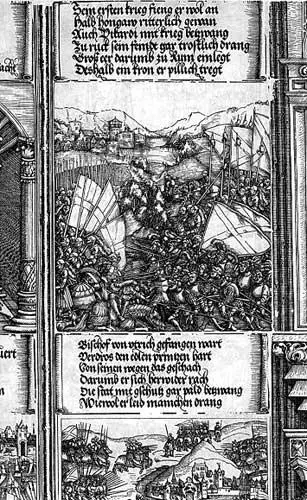 Sein ersten krieg fieng er wol an
Halb hongaw ritterlich gewan
Auch Pikardi mit krieg betzwang
Zu ruck sein feindt gar trostlich drang
Groß eer darumb zu Rum einlegt
Deshalb ein kron er pillich tregt
Bischof von vtrich gefangen wart
Verdros den edlen printzen hart
Von seinen wegen das geschach
Darumb er sich herwider rach
Die stat mit gschutz gar pald betzwang
Wiewol er leid manichen drang